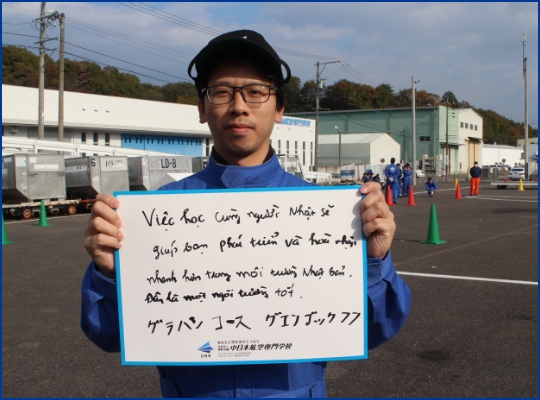 Việc học cùng người Nhật sẽ
giúp bạn phát triển và hoà nhập
nhanh hơn trong môi trường Nhật Bản.
Đây là một ngôi trường tốt.
グラハン コース グエンゴックフフ
中日本航空専門学校
6
LD-8